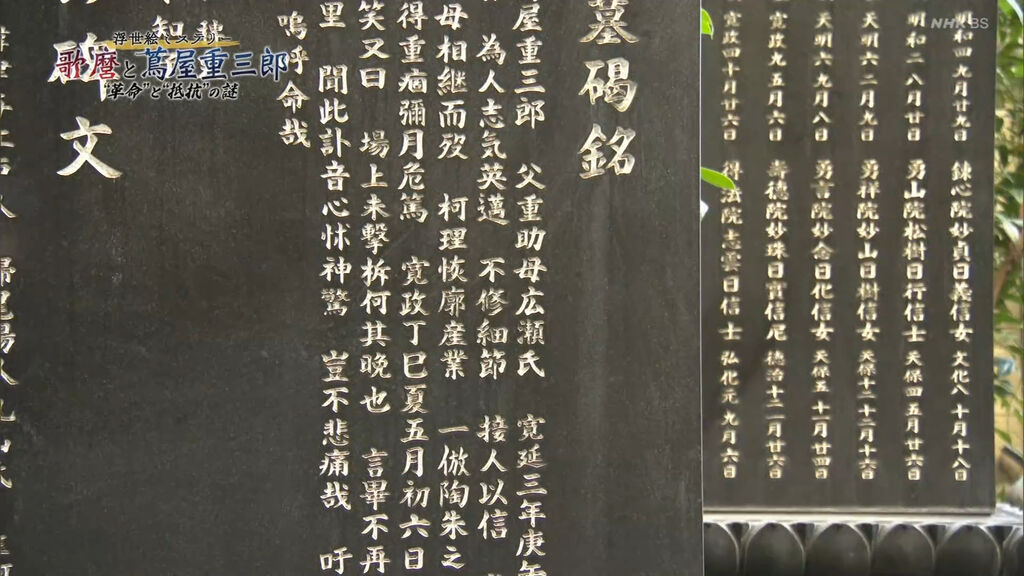 NHK BS
浮世絵ミステリー
歌麿と蔦屋重三郎
"革命"と"抵抗"の謎
墓碣銘
屋重三郎 父重助母広瀬氏 寛延三年庚午
為人志気英邁 不修細節 接人以信
母相継而歿 柯理恢廓産業 一倣陶朱之
得重痼彌月危篤 寛政丁巳夏五月初六日
笑又曰 場上未撃柝何其晩也 言畢不再
里 聞此訃音心怵神驚 豈不悲痛哉 吁
嗚呼命哉
文
明和四九月廿九日 錬心院妙貞日義信女 文化八十月十八日
明和二八月廿日 勇山院松樹日行信士 天保四五月廿六日
天明六二月九日 勇祥院妙山日樹信女 天保十二十二月十六日
天明六九月八日 勇言院妙念日化信女 天保五十一月廿四
寛政九五月六日
寛政四十月廿六日 弘化元九月六日